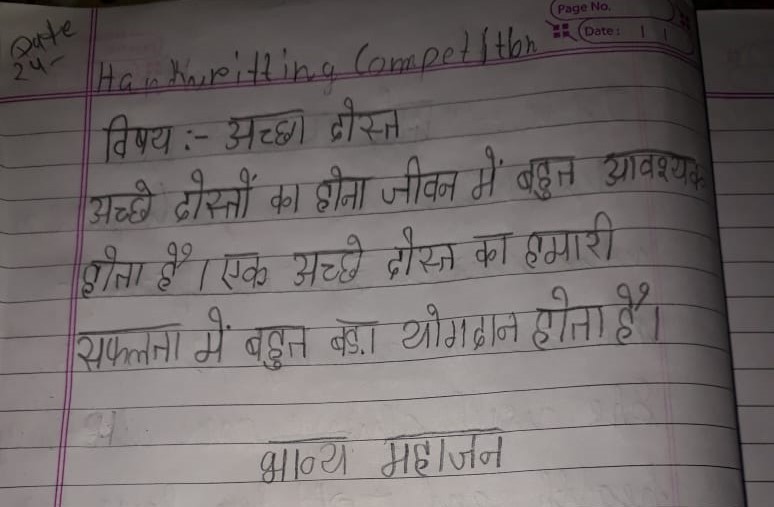 Page No.
Date:
Date
24-
Handwritting Competition
विषय :- अच्छा दोस्त
अच्छे दोस्तों का होना जीवन में बहुत आवश्यक
होता है। एक अच्छे दोस्त का हमारी
सफलता में बहुत बड़ा योगदान होता है।
भाव्य महाजन